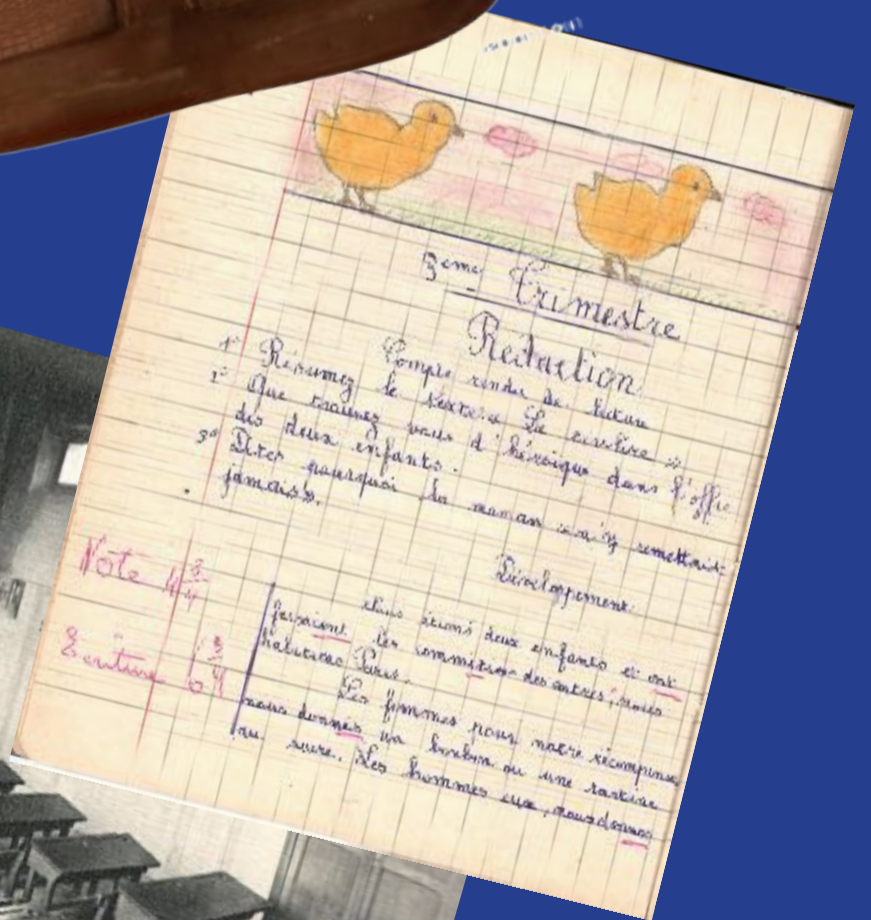 3eme Trimestre
Rédaction
Compte rendu de lecture
1° Résumez le texte « La civière »
2° Que trouvez vous d'héroique dans l'offre
des deux enfants.
3° Dites pourquoi la maman n'y remettrait
jamais ».
Développement
Note 4 3/4
Ecriture 6 3/4
étions deux enfants et ont
fesaient les commitions des autres, nous
habitions Paris.
Les femmes pour notre récompense
nous donnés un bonbon ou une tartine
au sucre. Les hommes eux, nous donnés